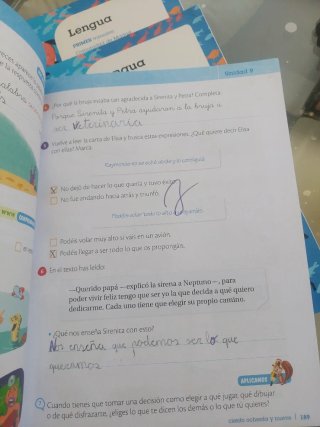 Lengua
PRIMER trimestre
Lengua
Unidad 9
¿Por qué la bruja estaba tan agradecida a Sirenita y Petra? Completa.
Porque Sirenita y Petra ayudaron a la bruja a
ser veterinaria
Vuelve a leer la carta de Elisa y busca estas expresiones. ¿Qué quiere decir Elisa
con ellas? Marca.
No dejó de hacer lo que quería y tuvo éxito.
No fue andando hacia atrás y triunfó.
Podéis volar muy alto si vais en un avión.
Podéis llegar a ser todo lo que os propongáis.
En el texto has leído:
—Querido papá —explicó la sirena a Neptuno—, para
poder vivir feliz tengo que ser yo la que decida a qué quiero
dedicarme. Cada uno tiene que elegir su propio camino.
• ¿Qué nos enseña Sirenita con esto?
Nos enseña que podemos ser lo que
queramos
APLICAMOS
7 Cuando tienes que tomar una decisión como elegir a qué jugar, qué dibujar
o de qué disfrazarte, ¿eliges lo que te dicen los demás o lo que tú quieres?
ciento ochenta y nueve 189